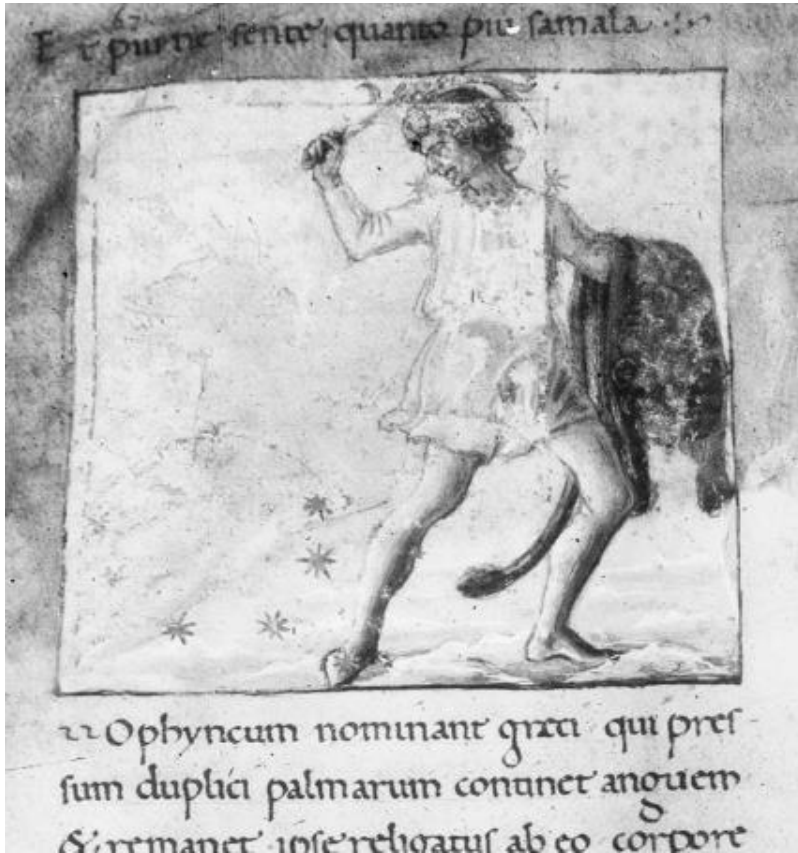 Et piu ne sente quanto piu samala
Ophyncum nominant greci qui pres-
sum duplici palmarum continet anguem
& remanet ipse religatus ab eo corpore